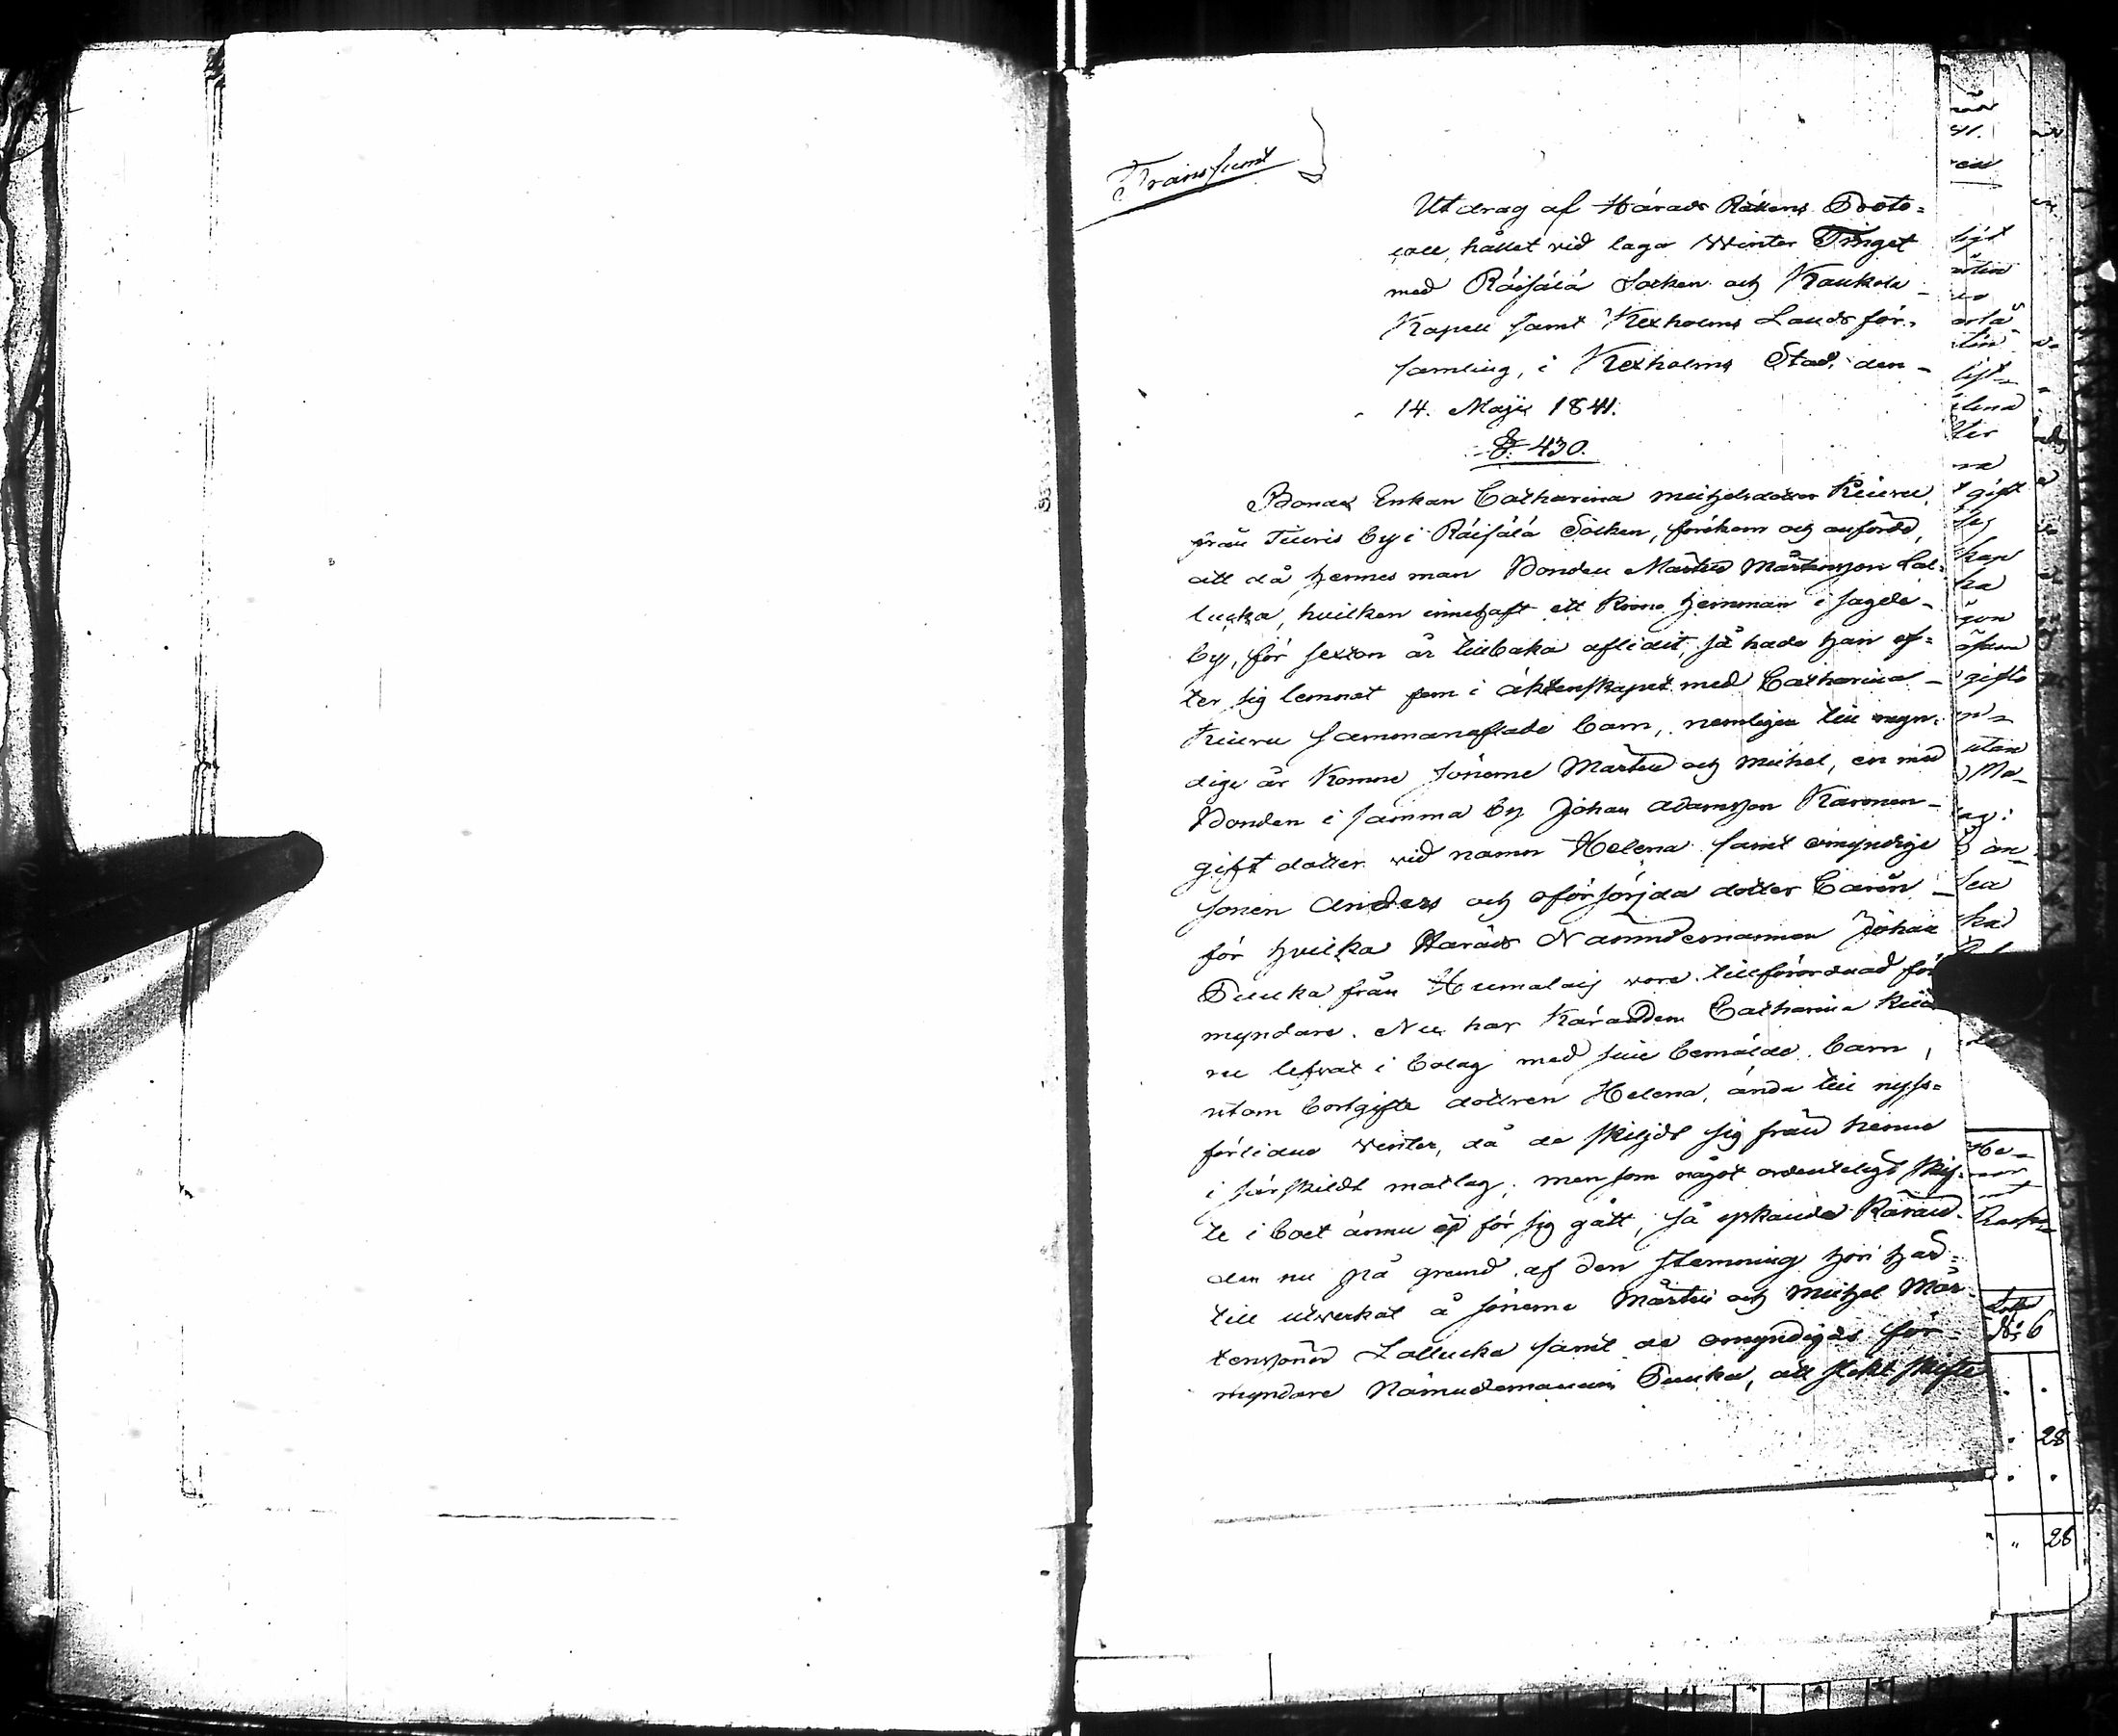 Transsumt
Utdrag af Härads Rättens Proto-
coll, hållet vid laga Winter Tinget
med Räisälä Socken och Kaukola
Kapell samt Kexholms Landsför-
samling, i Kexholms Stad den
14. Maji 1841.
§. 430.
Bonde Enkan Catharina Michelsdotter Kiuru
från Tiuris by i Räisälä Socken, förekom och anförde,
att då hennes man Bonden Mårten Mårtensson Lal-
lucka, hvilken innehaft ett Krono hemman i sagde
by, för sexton år tillbaka aflidit, så hade han ef-
ter sig lemnat fem i äktenskapet med Catharina
Kiuru sammanaflade barn, nemligen till myn-
dige år komne sönerne Mårten och Michel, en med
Bonden i samma by Johan Adamsson Karonen
gift dotter vid namn Helena samt omyndige
sonen Anders och oförsörjda dotter Carin
för hvilka Härads Nämndemannen Johan
Puukka från Humalais vore tillförordnad för
myndare. Nu har Käranden Catharina Kiu
ru lefvat i bolag med sine bemälde barn,
utom bortgifte dottren Helena, ända till nyss-
förlidne vinter, då de skiljdt sig från henne
i särskildt matlag; men som något ordenteligt skif-
te i boet ännu ej för sig gått, så yrkande Käran-
den nu på grund af den stemning hon här-
till utverkat å sönerne Mårten och Michel Mår-
tenssöner Lallucka samt de omyndigas för-
myndare Nämndemannen Puukka, att slikt skifte
gift
utan
Ma-
No 6
28
28